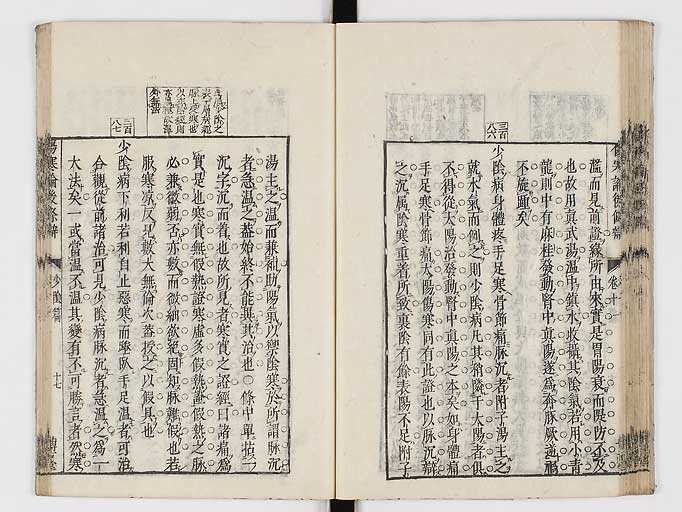 濫而見前證緣所由來實是胃陽衰而隄防不及
也故用真武湯溫中鎮水收攝其陰氣若用小青
龍則中有麻桂發動腎中真陽遂為奔豚厥逆禍
不旋踵矣
三百八六
少陰病身體疼手足寒骨節痛脈沉者附子湯主之
就水氣而例之則少陰病凡其稍隣于太陽者俱
不得從太陽治發動腎中真陽之本矣如身體痛
手足寒骨節痛太陽傷寒同有此證也以脈沉辯
之沉屬陰寒重著所致裏陰有餘表陽不足附子
湯主之溫而兼補助陽氣以禦陰寒於所謂脈沉
者急溫之蓋始終不能異其治也○條中單拈一
沉字沉而着也故所見者寒實之證經曰諸痛為
實是也寒實無假熱證寒虛多假熱證假熱之脈
必兼微弱否亦數而微細欲絕固知脈難假也若
服寒凉反見數大無倫次蓋授之以假具也
三百八七
少陰病下利若利自止惡寒而踡臥手足溫者可治
合觀從前諸治可見少陰病脈沉者急溫之為一
大法矣一或當溫不溫其變有不可勝言者然寒
傷寒論後條辯
少陰篇
十七